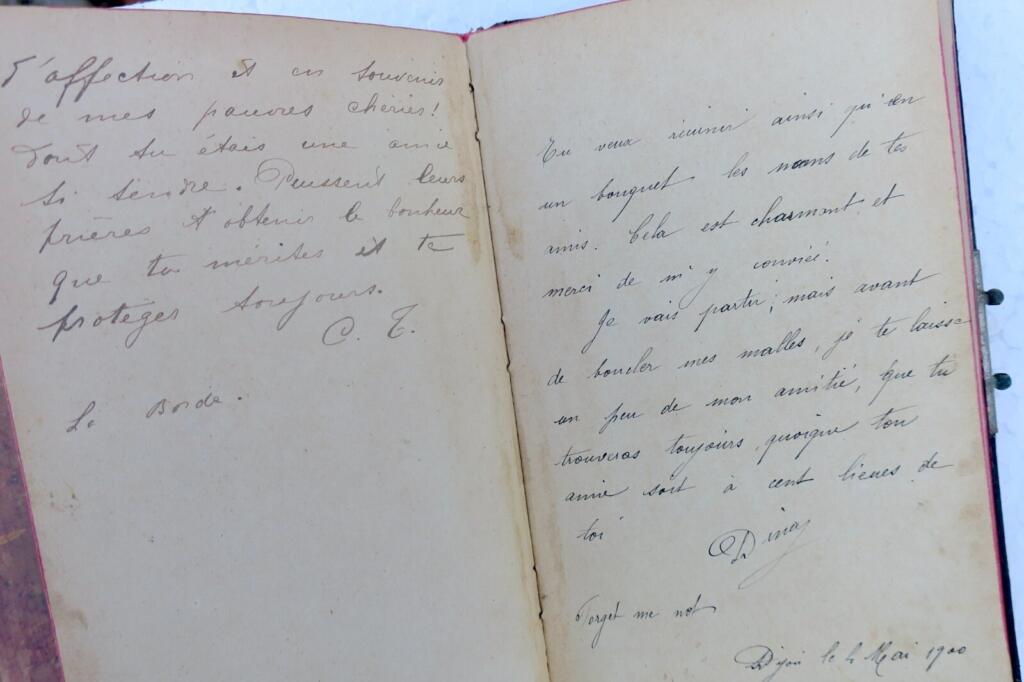 d'affection et en souvenir
de mes pauvres chéries!
dont tu étais une amie
si tendre. Puissent leurs
prières t'obtenir le bonheur
que tu mérites et te
protéger toujours.
C. T.
La Borde.
Tu veux réunir ainsi qu'en
un bouquet les noms de tes
amis. Cela est charmant et
merci de m'y convier.
Je vais partir; mais avant
de boucler mes malles, je te laisse
un peu de mon amitié, que tu
trouveras toujours quoique ton
amie soit à cent lieues de
toi
Dina
Forget me not
Dijon le 4 Mai 1900